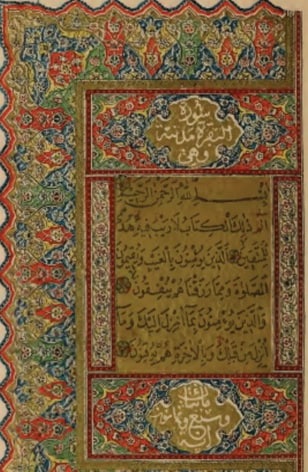 سورة
البقرة مدنية
وهي
بسم الله الرحمن الرحيم
الم ذلك الكتاب لا ريب فيه هدى
للمتقين الذين يؤمنون بالغيب ويقيمون
الصلوة ومما رزقناهم ينفقون
والذين يؤمنون بما أنزل اليك وما
أنزل من قبلك وبالآخرة هم يوقنون
مائتان
وسبع وثمانون